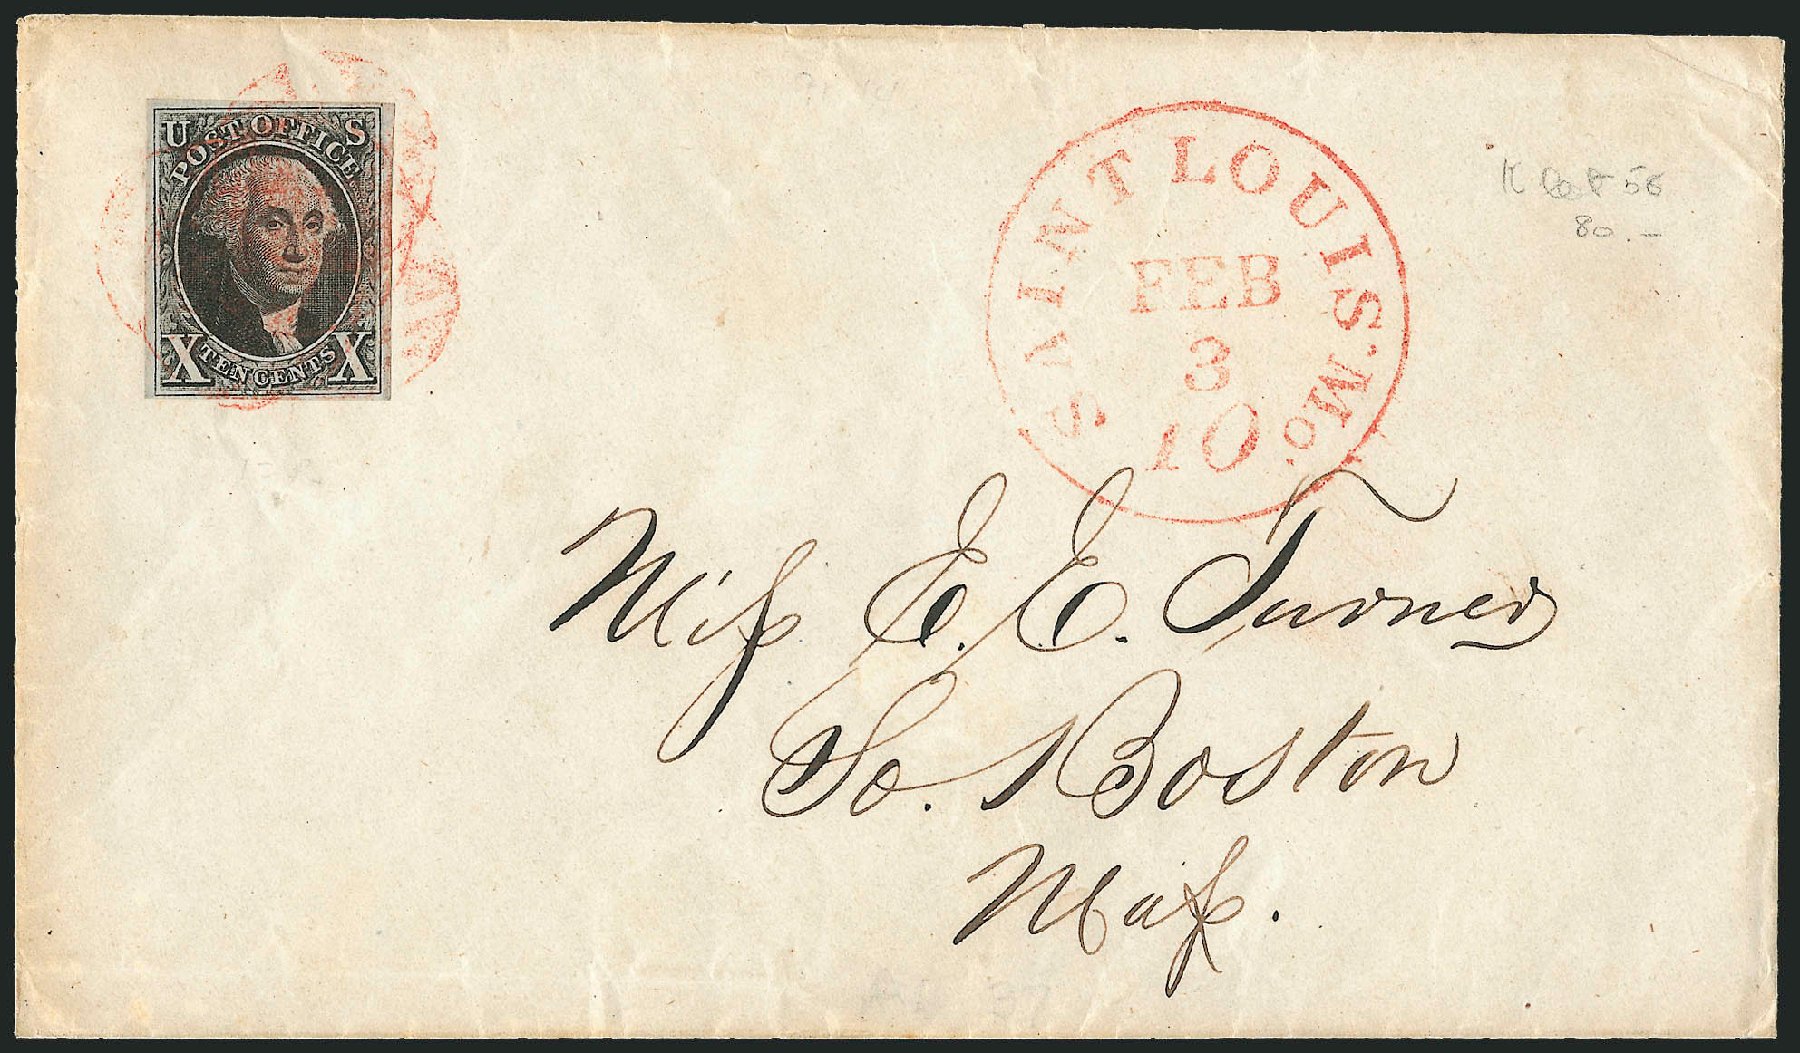 U S
POST OFFICE
X TEN CENTS X
SAINT LOUIS. Mo.
FEB
3
10
56
80.—
Miſs E. E. Turner
So. Boston
Maſs.